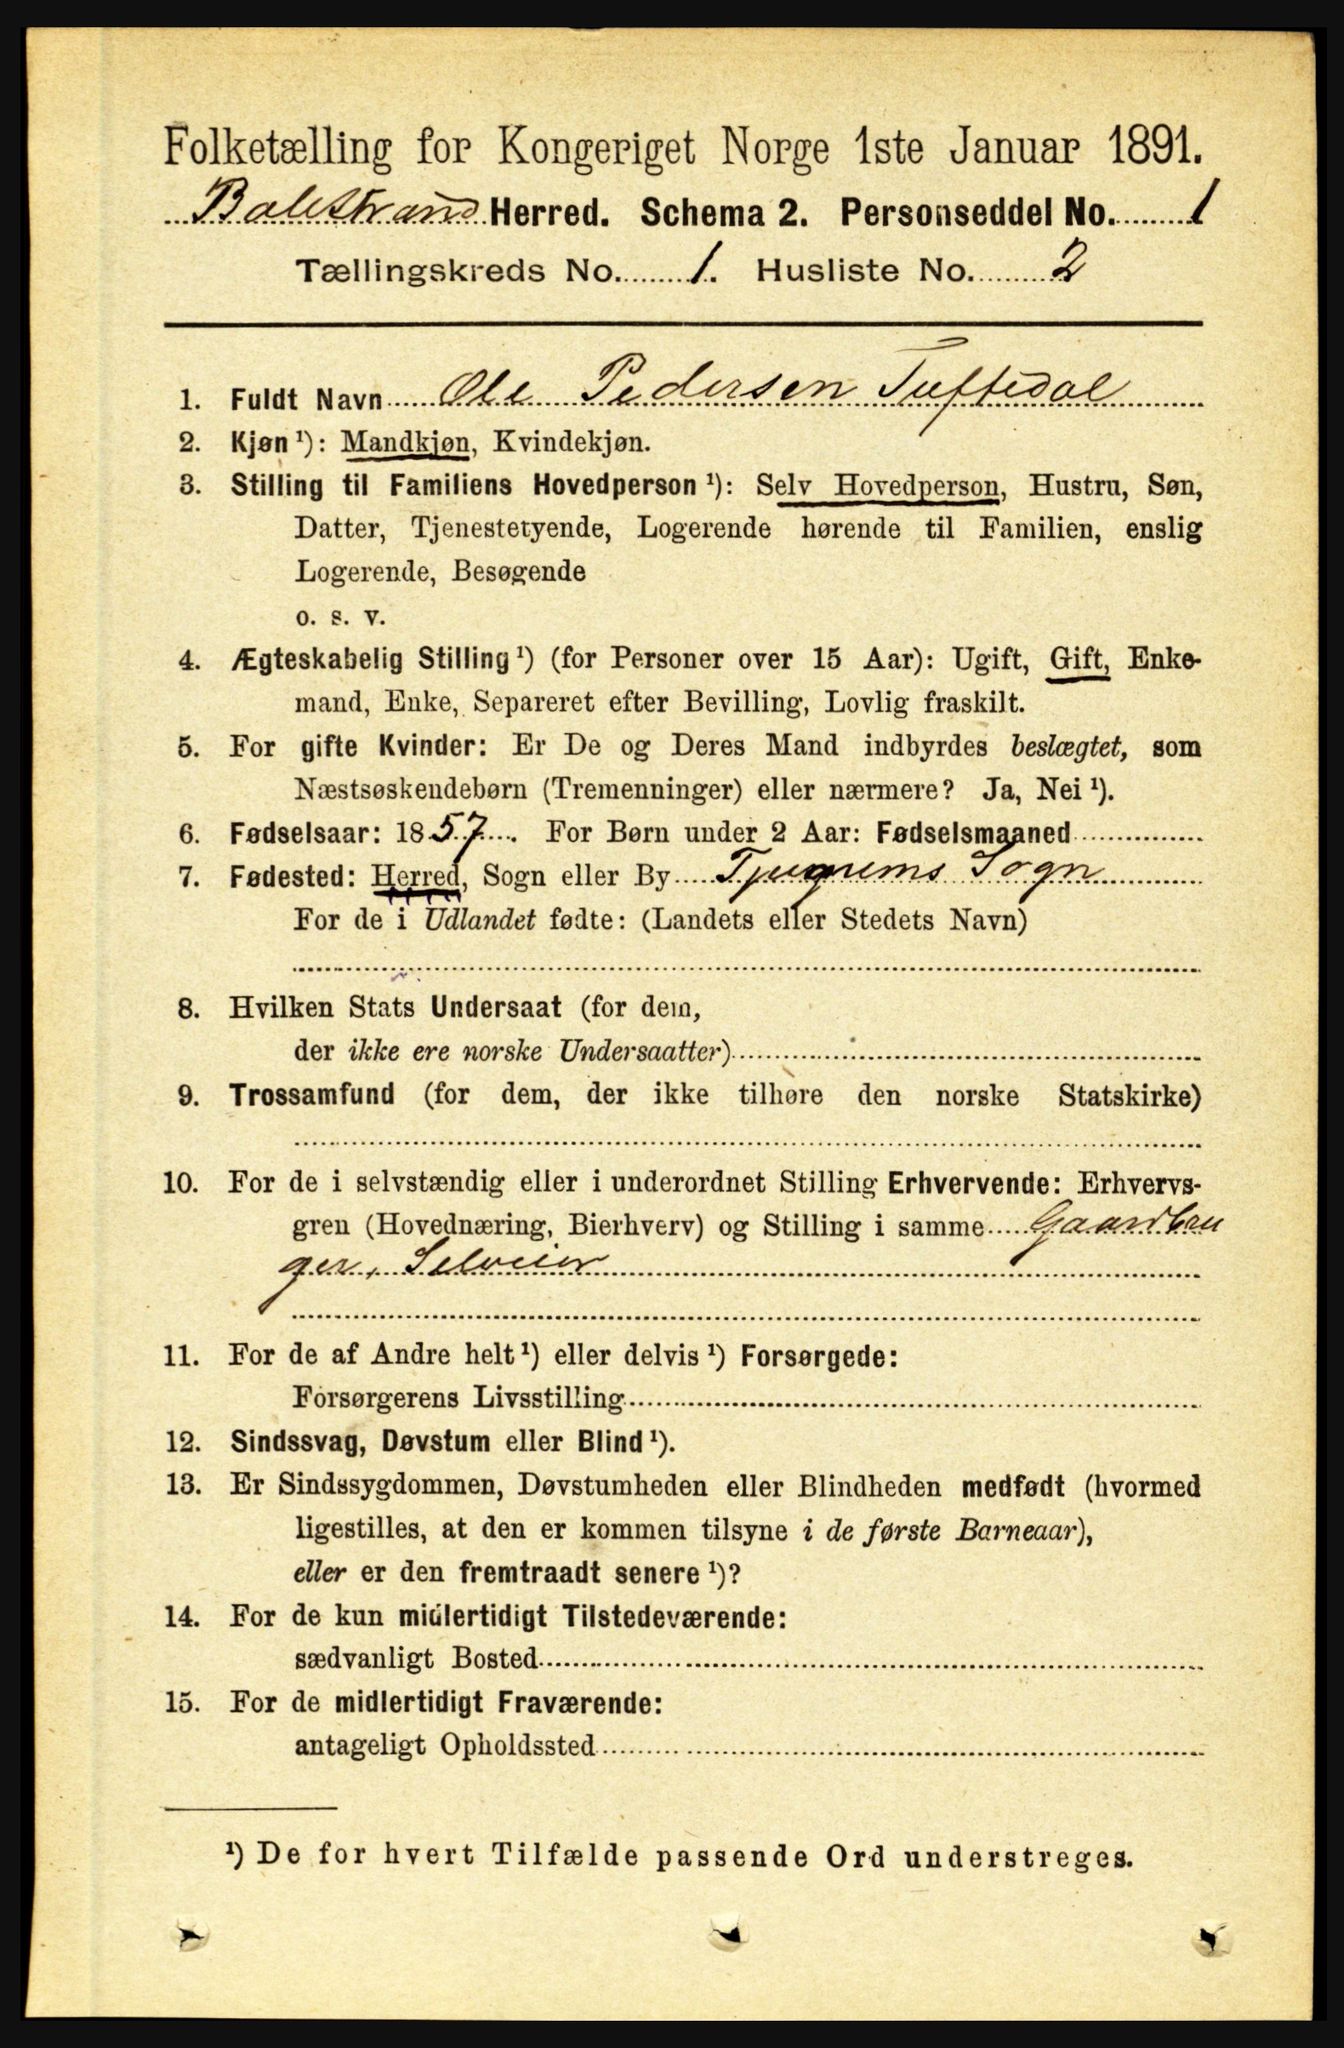 Folketælling for Kongeriget Norge 1ste Januar 1891.
Balestrand Herred. Schema 2. Personseddel No. 1
Tællingskreds No. 1. Husliste No. 2
1. Fuldt Navn Ole Pedersen Tuftedal
2. Kjøn ¹): Mandkjøn, Kvindekjøn.
3. Stilling til Familiens Hovedperson ¹): Selv Hovedperson, Hustru, Søn,
Datter, Tjenestetyende, Logerende hørende til Familien, enslig
Logerende, Besøgende
o. s. v.
4. Ægteskabelig Stilling ¹) (for Personer over 15 Aar): Ugift, Gift, Enke-
mand, Enke, Separeret efter Bevilling, Lovlig fraskilt.
5. For gifte Kvinder: Er De og Deres Mand indbyrdes beslægtet, som
Næstsøskendebørn (Tremenninger) eller nærmere? Ja, Nei ¹).
6. Fødselsaar: 1857. For Børn under 2 Aar: Fødselsmaaned
7. Fødested: Herred, Sogn eller By Tjugums Sogn
For de i Udlandet fødte: (Landets eller Stedets Navn)
8. Hvilken Stats Undersaat (for dem,
der ikke ere norske Undersaatter)
9. Trossamfund (for dem, der ikke tilhøre den norske Statskirke)
10. For de i selvstændig eller i underordnet Stilling Erhvervende: Erhvervs-
gren (Hovednæring, Bierhverv) og Stilling i samme Gaardbru
ger, Selveier
11. For de af Andre helt ¹) eller delvis ¹) Forsørgede:
Forsørgerens Livsstilling
12. Sindssvag, Døvstum eller Blind ¹).
13. Er Sindssygdommen, Døvstumheden eller Blindheden medfødt (hvormed
ligestilles, at den er kommen tilsyne i de første Barneaar),
eller er den fremtraadt senere ¹)?
14. For de kun midlertidigt Tilstedeværende:
sædvanligt Bosted
15. For de midlertidigt Fraværende:
antageligt Opholdssted
¹) De for hvert Tilfælde passende Ord understreges.